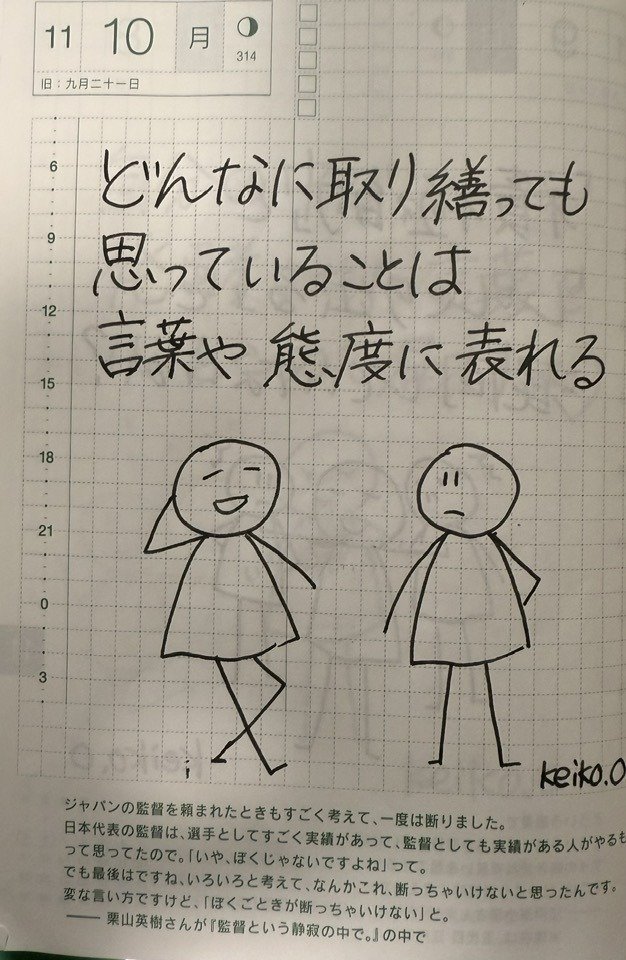 11 10 月
314
旧：九月二十一日
どんなに取り繕っても
思っていることは
言葉や態度に表れる
6
9
12
15
18
21
0
3
keiko.O
ジャパンの監督を頼まれたときもすごく考えて、一度は断りました。
日本代表の監督は、選手としてすごく実績があって、監督としても実績がある人がやるも
って思ってたので。「いや、ぼくじゃないですよね」って。
でも最後はですね、いろいろと考えて、なんかこれ、断っちゃいけないと思ったんです。
変な言い方ですけど、「ぼくごときが断っちゃいけない」と。
—— 栗山英樹さんが『監督という静寂の中で。』の中で